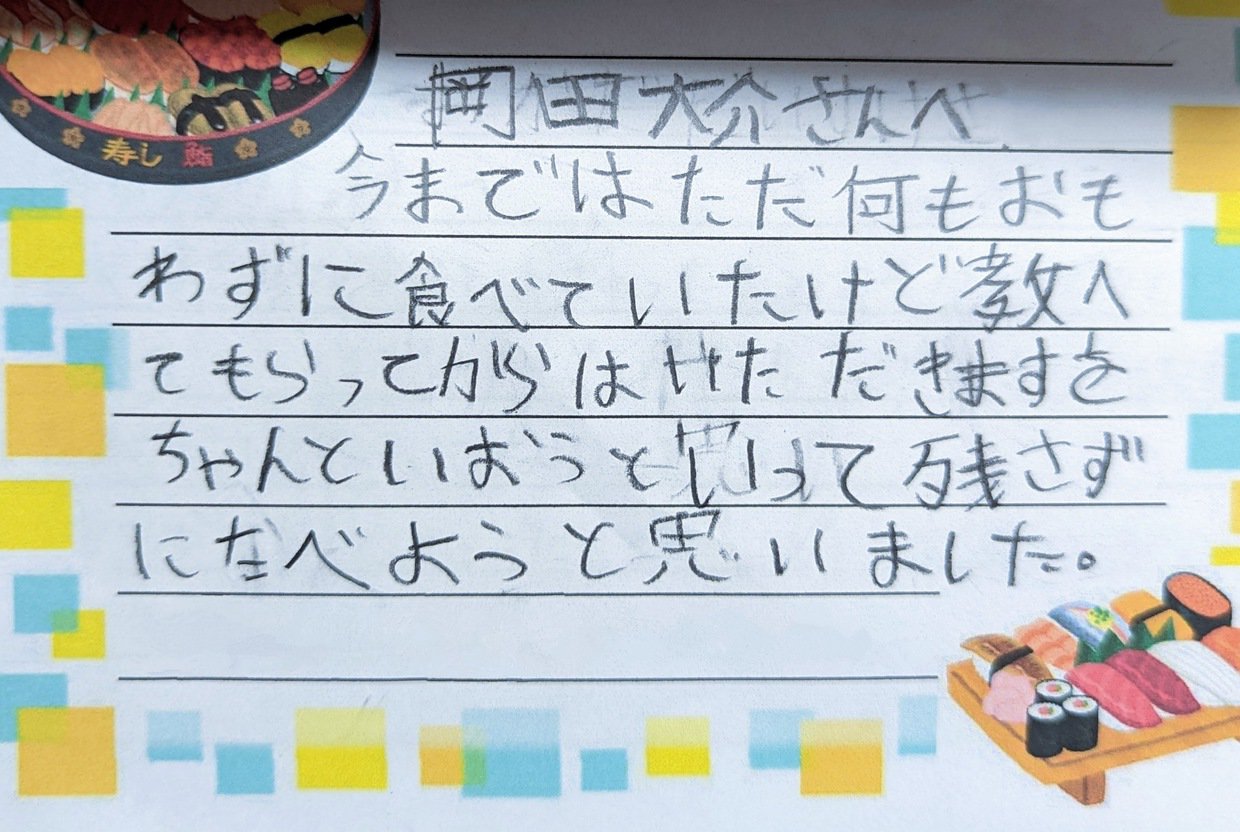 寿し 鮨
岡田大介さんへ
今まではただ何もおも
わずに食べていたけど教へ
てもらってからはいただきますを
ちゃんといおうと思って残さず
にたべようと思いました。